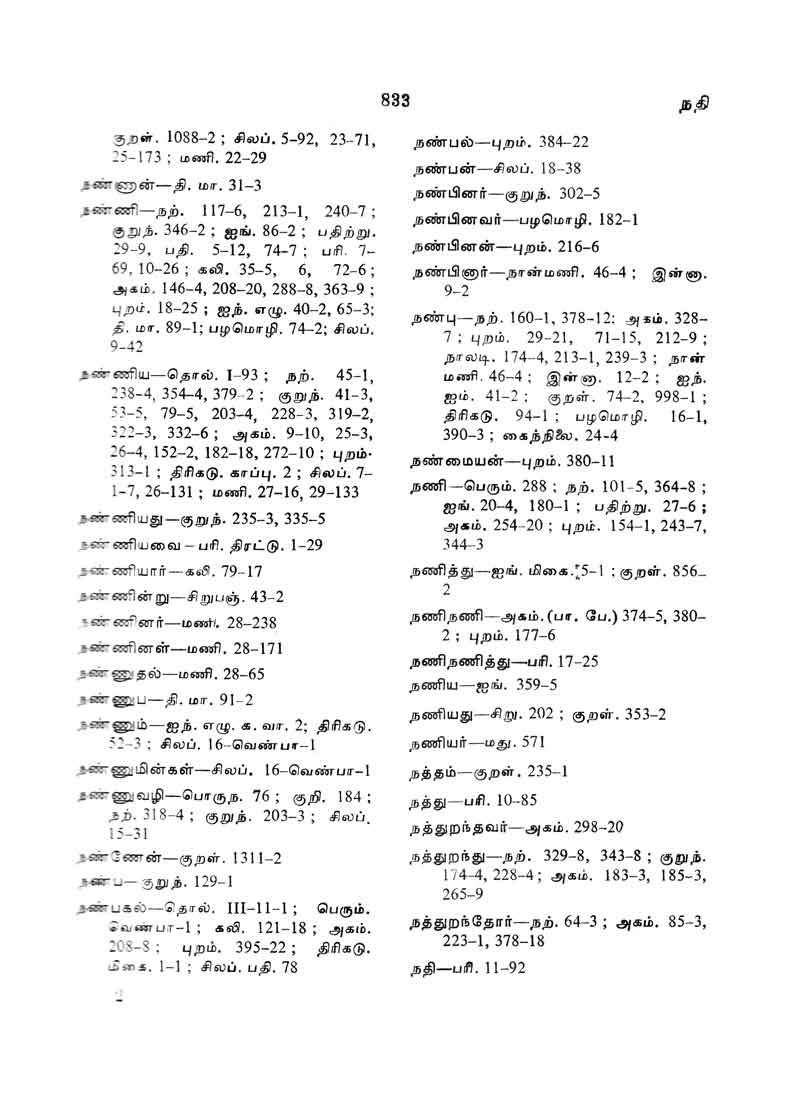 833
நதி
குறள். 1088–2 ; சிலப். 5–92, 23–71,
25–173 ; மணி. 22–29
நண்ணான்—தி. மா. 31–3
நண்ணி—நற். 117–6, 213–1, 240–7 ;
குறுந். 346–2 ; ஐங். 86–2 ; பதிற்று.
29–9, பதி. 5–12, 74–7 ; பரி. 7–
69, 10–26 ; கலி. 35–5, 6, 72–6 ;
அகம். 146–4, 208–20, 288–8, 363–9 ;
புறம். 18–25 ; ஐந். எழு. 40–2, 65–3;
தி. மா. 89–1; பழமொழி. 74–2; சிலப்.
9–42
நண்ணிய—தொல். I–93 ; நற். 45–1,
238–4, 354–4, 379–2 ; குறுந். 41–3,
53–5, 79–5, 203–4, 228–3, 319–2,
322–3, 332–6 ; அகம். 9–10, 25–3,
26–4, 152–2, 182–18, 272–10 ; புறம்.
313–1 ; திரிகடு. காப்பு. 2 ; சிலப். 7–
1–7, 26–131 ; மணி. 27–16, 29–133
நண்ணியது—குறுந். 235–3, 335–5
நண்ணியவை – பரி. திரட்டு. 1–29
நண்ணியார்—கலி. 79–17
நண்ணின்று—சிறுபஞ். 43–2
நண்ணினர்—மணி. 28–238
நண்ணினள்—மணி. 28–171
நண்ணுதல்—மணி. 28–65
நண்ணுப—தி. மா. 91–2
நண்ணும்—ஐந். எழு. க. வா. 2; திரிகடு.
52–3 ; சிலப். 16–வெண்பா–1
நண்ணுமின்கள்—சிலப். 16–வெண்பா–1
நண்ணுவழி—பொருந. 76 ; குறி. 184 ;
நற். 318–4 ; குறுந். 203–3 ; சிலப்.
15–31
நண்ணேன்—குறள். 1311–2
நண்ப—குறுந். 129–1
நண்பகல்—தொல். III–11–1 ; பெரும்.
வெண்பா–1 ; கலி. 121–18 ; அகம்.
208–8 ; புறம். 395–22 ; திரிகடு.
மிகை. 1–1 ; சிலப். பதி. 78
2
நண்பல்—புறம். 384–22
நண்பன்—சிலப். 18–38
நண்பினர்—குறுந். 302–5
நண்பினவர்—பழமொழி. 182–1
நண்பினன்—புறம். 216–6
நண்பினார்—நான்மணி. 46–4 ; இன்னா.
9–2
நண்பு—நற். 160–1, 378–12: அகம். 328–
7 ; புறம். 29–21, 71–15, 212–9 ;
நாலடி. 174–4, 213–1, 239–3 ; நான்
மணி. 46–4 ; இன்னா. 12–2 ; ஐந்.
ஐம். 41–2 ; குறள். 74–2, 998–1 ;
திரிகடு. 94–1 ; பழமொழி. 16–1,
390–3 ; கைந்நிலை. 24–4
நண்மையன்—புறம். 380–11
நணி—பெரும். 288 ; நற். 101–5, 364–8 ;
ஐங். 20–4, 180–1 ; பதிற்று. 27–6 ;
அகம். 254–20 ; புறம். 154–1, 243–7,
344–3
நணித்து—ஐங். மிகை. 5–1 ; குறள். 856–
2
நணிநணி—அகம். (பா. பே.) 374–5, 380–
2 ; புறம். 177–6
நணிநணித்து—பரி. 17–25
நணிய—ஐங். 359–5
நணியது—சிறு. 202 ; குறள். 353–2
நணியர்—மது. 571
நத்தம்—குறள். 235–1
நத்து—பரி. 10–85
நத்துறந்தவர்—அகம். 298–20
நத்துறந்து—நற். 329–8, 343–8 ; குறுந்.
174–4, 228–4 ; அகம். 183–3, 185–3,
265–9
நத்துறந்தோர்—நற். 64–3 ; அகம். 85–3,
223–1, 378–18
நதி—பரி. 11–92